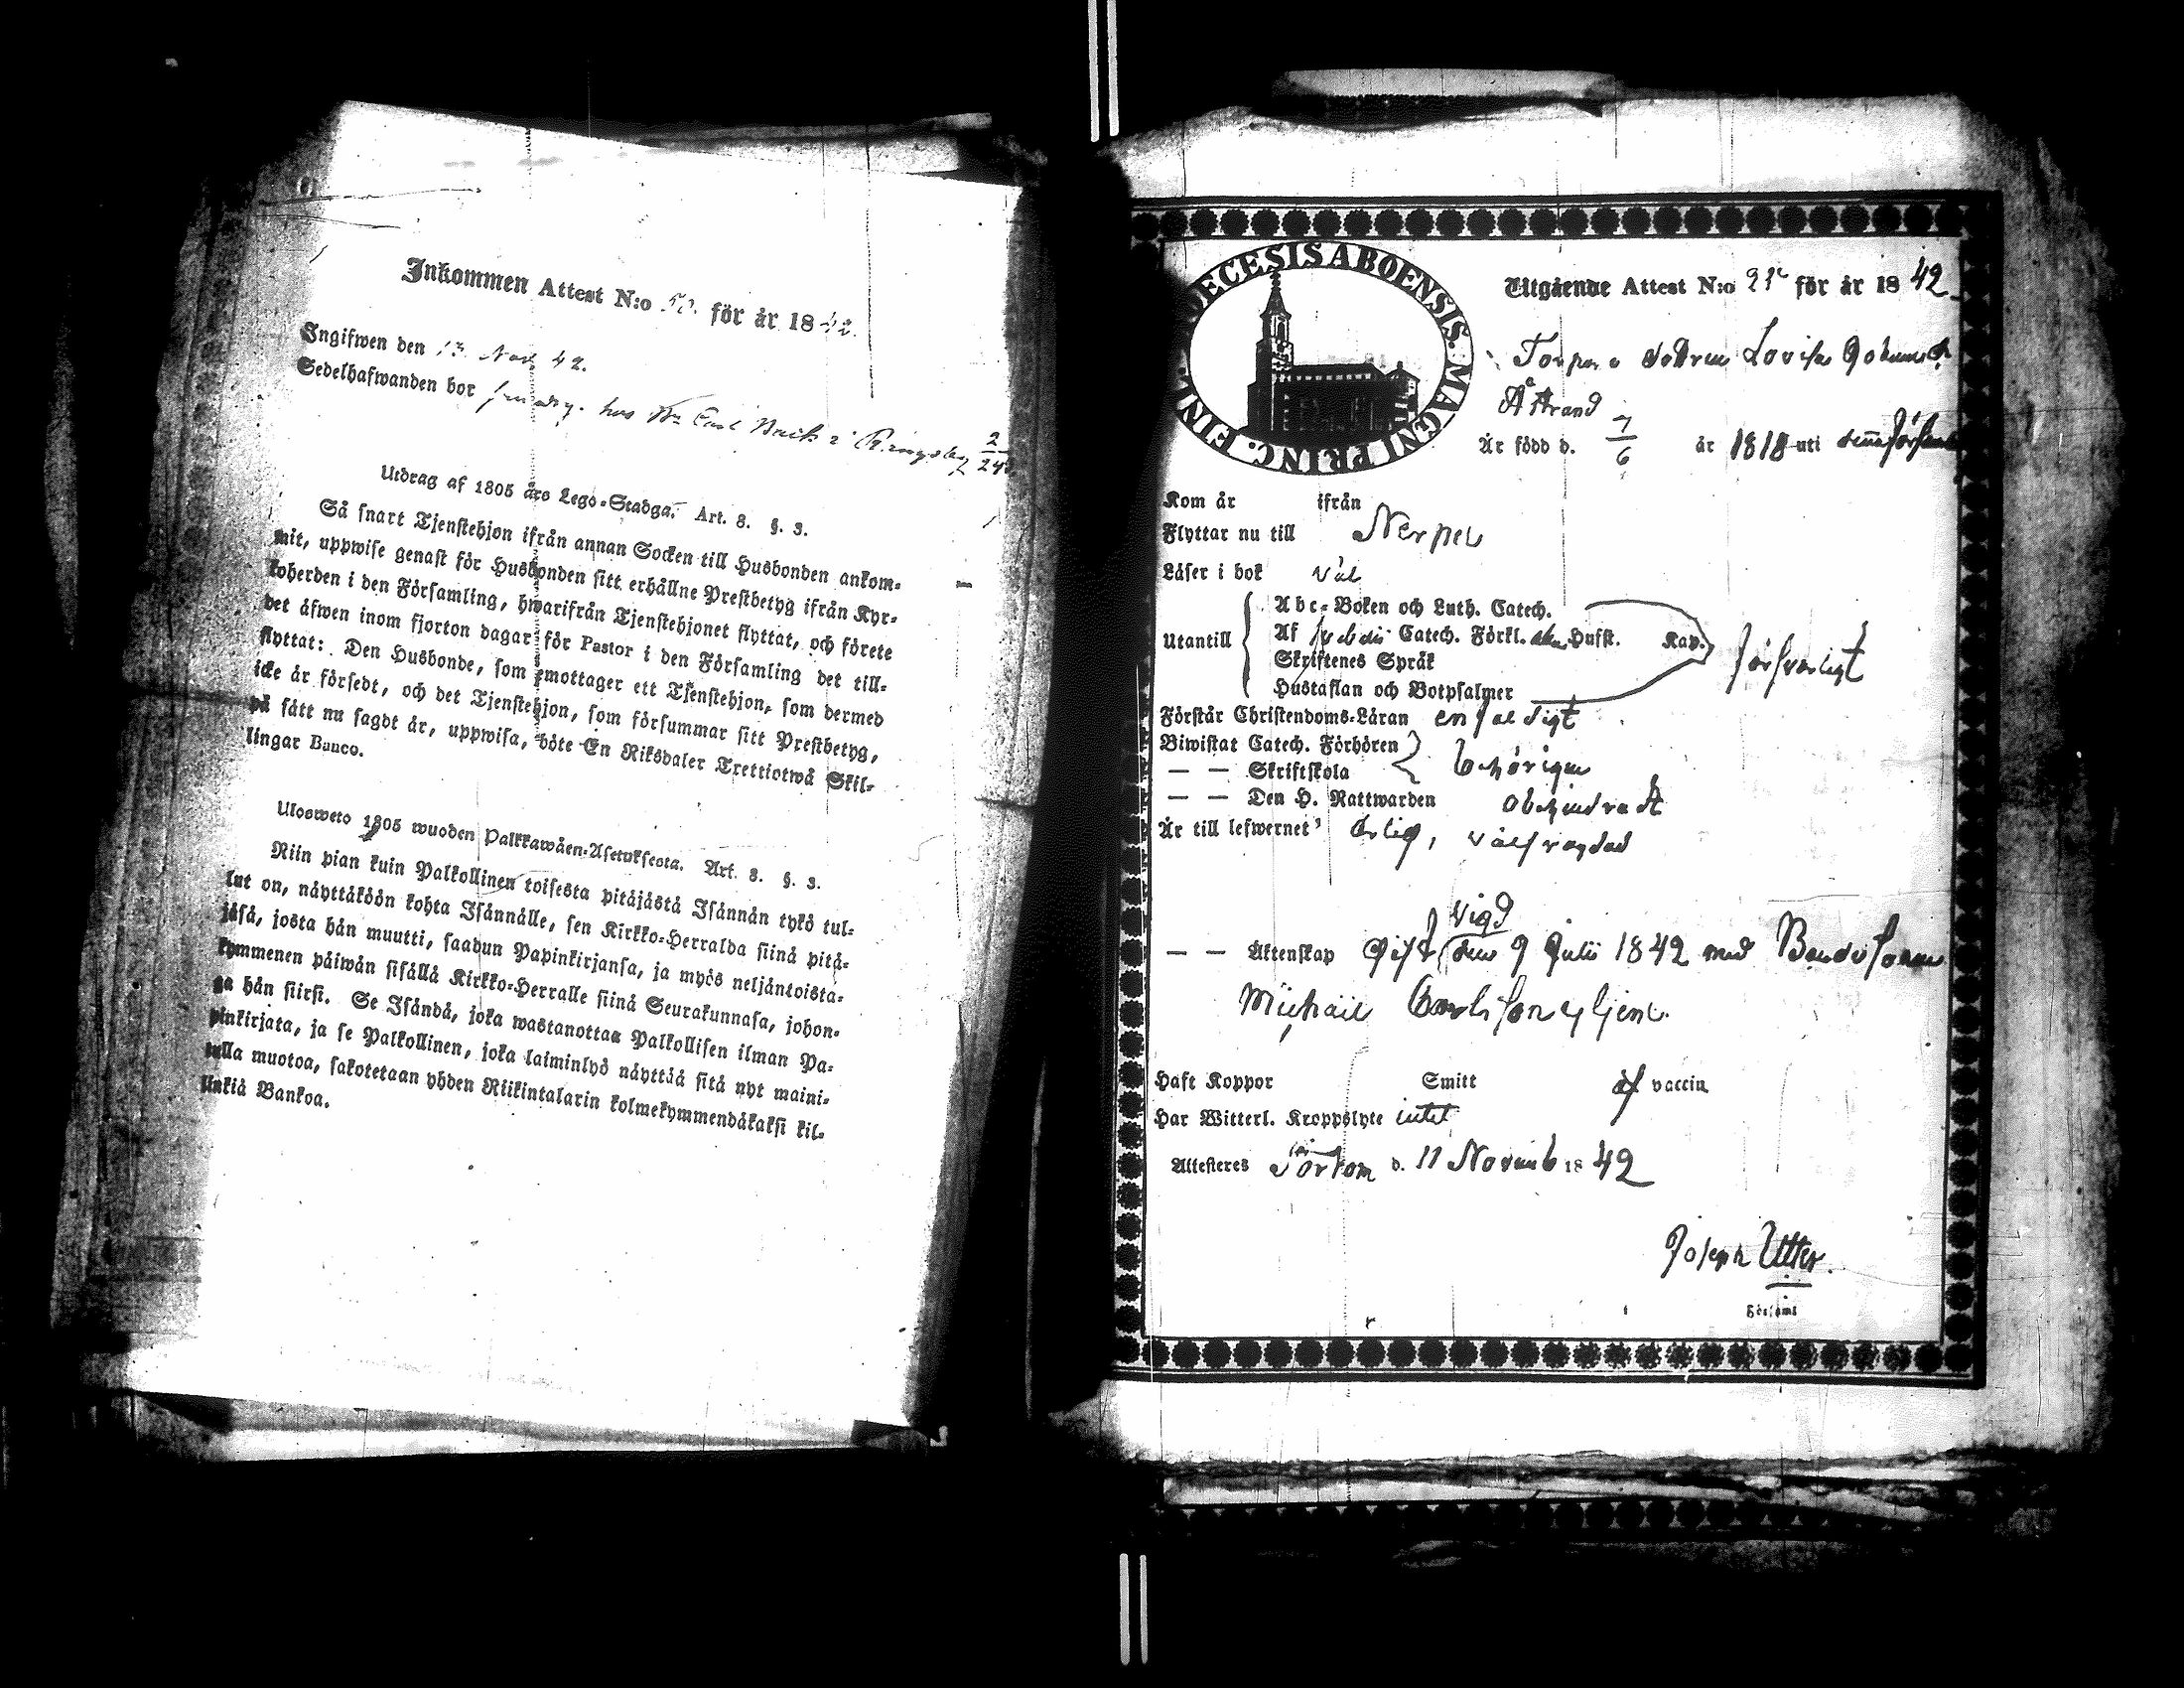 Inkommen Attest N:o 52. för år 1842.
Ingifwen den 13 Nov 42.
Sedelhafwanden bor hos Carl i
Utdrag af 1805 års Lego-Stadga. Art. 8. §. 3.
Så snart Tjenstehjon ifrån annan Socken till Husbonden ankom-
mit, uppwise genast för Husbonden sitt erhållne Prestbetyg ifrån Kyr-
koherden i den Församling, hwarifrån Tjenstehjonet flyttat, och förete
det äfwen inom fjorton dagar för Pastor i den Församling det till-
flyttat: Den Husbonde, som emottager ett Tjenstehjon, som dermed
icke är försedt, och det Tjenstehjon, som försummar sitt Prestbetyg,
på sätt nu sagdt är, uppwisa, böte En Riksdaler Trettiotwå Skil-
lingar Banco.
Ulosweto 1805 wuoden Palkkawäen-Asetuksesta. Art. 8. §. 3.
Niin pian kuin Palkollinen toisesta pitäjästä Isännän tykö tul-
lut on, näyttäköön kohta Isännälle, sen Kirkko-Herralda siinä pitä-
jäsä, josta hän muutti, saadun Papinkirjansa, ja myös neljäntoista-
kymmenen päiwän sisällä Kirkko-Herralle siinä Seurakunnasa, johon-
ga hän siirsi. Se Isändä, joka wastanottaa Palkollisen ilman Pa-
pinkirjata, ja se Palkollinen, joka laiminlyö näyttää sitä nyt maini-
tulla muotoa, sakotetaan yhden Riikintalarin kolmekymmendäkaksi kil-
linkiä Bankoa.
DIOECESIS ABOENSIS. MAGNI PRINC. FINL.
Utgående Attest N:o för år 1842
Torpare dottren Lovisa
Åstrand
Är född d. 7/6 år 1818 uti denna Församl
Kom år ifrån
Flyttar nu till Nerpes
Läser i bok väl
Utantill
Abc-Boken och Luth. Catech.
Af Catech. Förkl. Husst. Kap.
Skriftenes Språk
Hustaflan och Botpsalmer
försvarligt
Förstår Christendoms-Läran enfaldigt
Biwistat Catech. Förhören
— — Skriftskola behörigen
— — Den H. Nattwarden obehindradt
Är till lefwernet ärlig, välfrägdad
vigd
— — Äktenskap gift den 9 Julii 1842 med Bondesonen
Michail Carlsson
Haft Koppor Smitt af vaccin
Har Witterl. Kroppslyte intet
Attesteres d. 11 Novemb 1842
Joseph Utter.